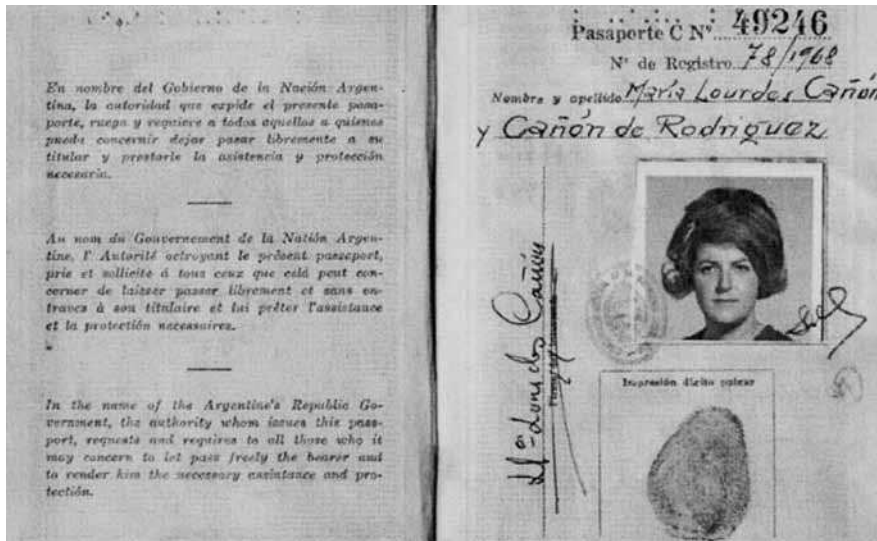 En nombre del Gobierno de la Nación Argen-
tina, la autoridad que expide el presente pasa-
porte, ruega y requiere a todos aquellos a quienes
pueda concernir dejar pasar libremente a su
titular y prestarle la asistencia y protección
necesaria.
Au nom du Gouvernement de la Natión Argen-
tine, l' Autorité octroyant le présent passeport,
prie et sollicite á tous ceux que celá peut con-
cerner de laisser passer librement et sans en-
traves à son titulaire et lui prêter l'assistance
et la protectión necessaires.
In the name of the Argentine's Republic Go-
vernment, the authority whom issues this pass-
port, requests and requires to all those who it
may concern to let pass freely the bearer and
to render him the necessary assintance and pro-
tectión.
Pasaporte C Nº 49246
Nº de Registro 78/1968
Nombre y apellido María Lourdes Cañón
y Cañón de Rodriguez
Mª Lourdes Cañón
Impresión dígito pulgar